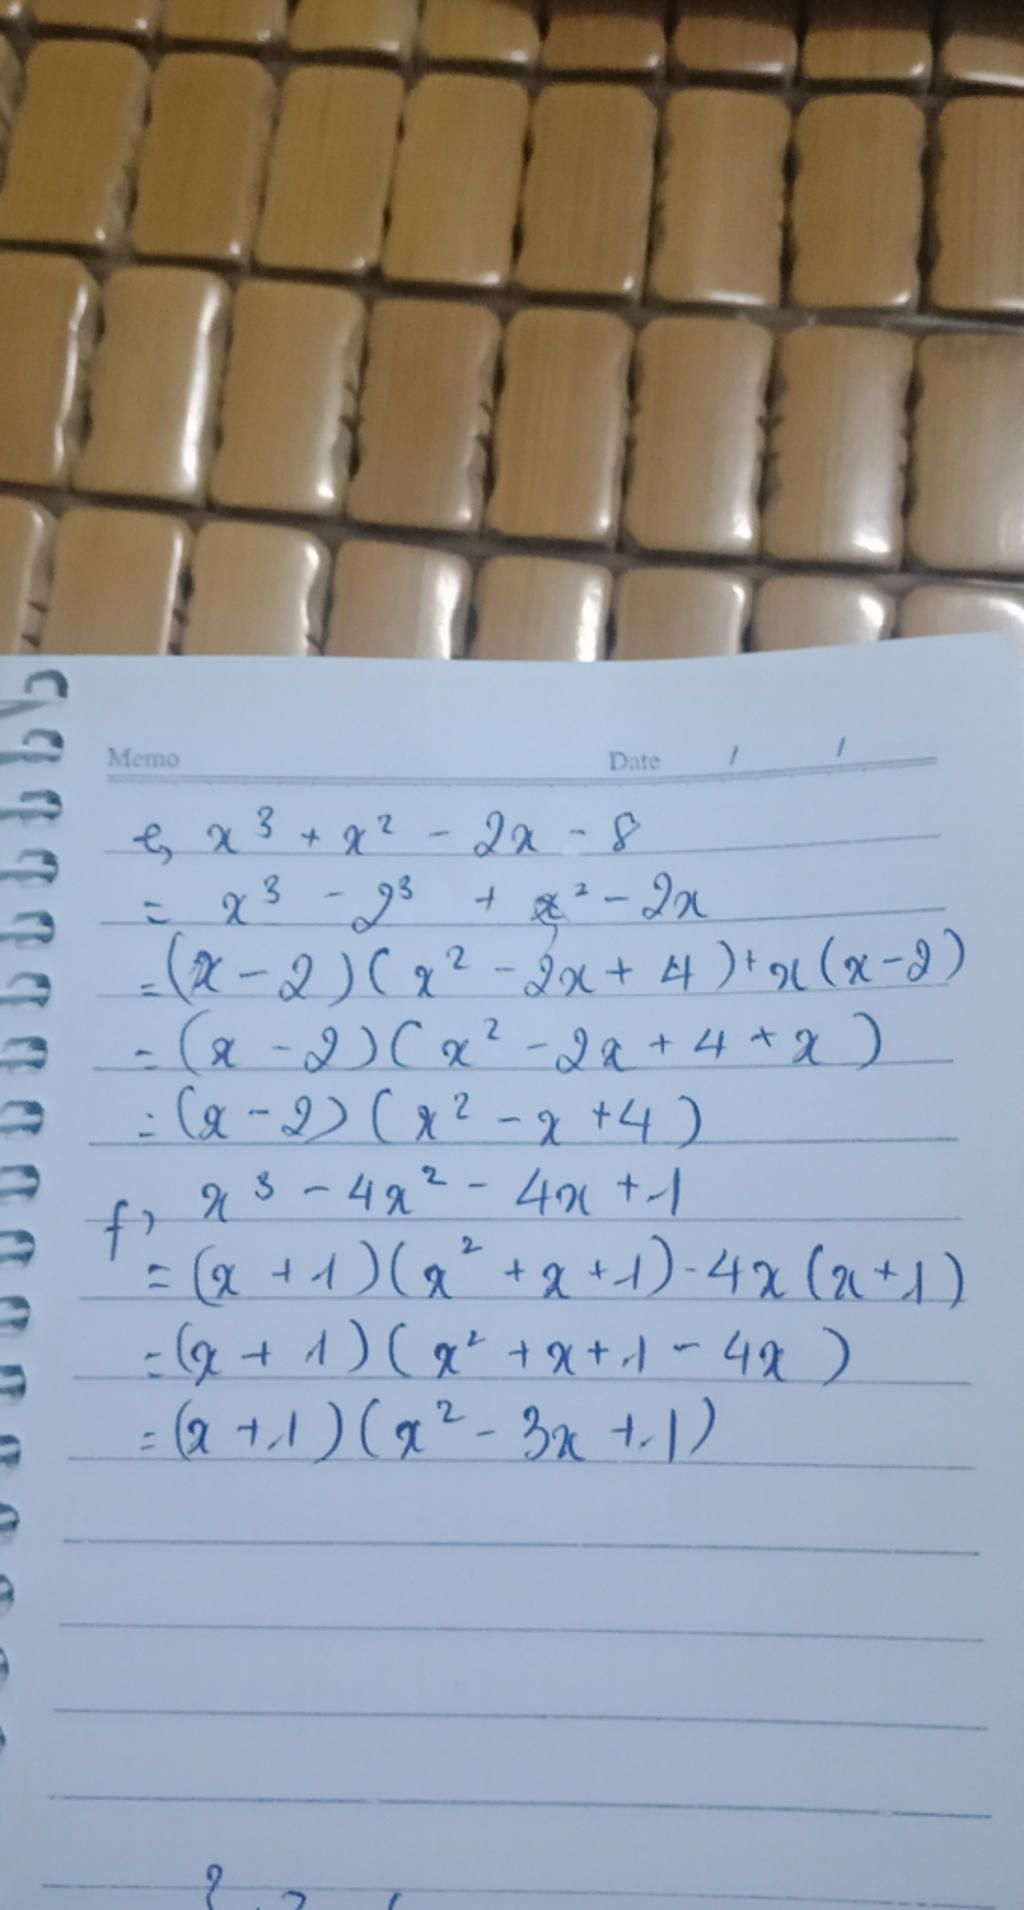 Memo Date / /
e, x³ + x² - 2x - 8
= x³ - 2³ + x² - 2x
= (x - 2)(x² - 2x + 4) + x(x - 2)
= (x - 2)(x² - 2x + 4 + x)
= (x - 2)(x² - x + 4)
f, x³ - 4x² - 4x + 1
= (x + 1)(x² + x + 1) - 4x(x + 1)
= (x + 1)(x² + x + 1 - 4x)
= (x + 1)(x² - 3x + 1)